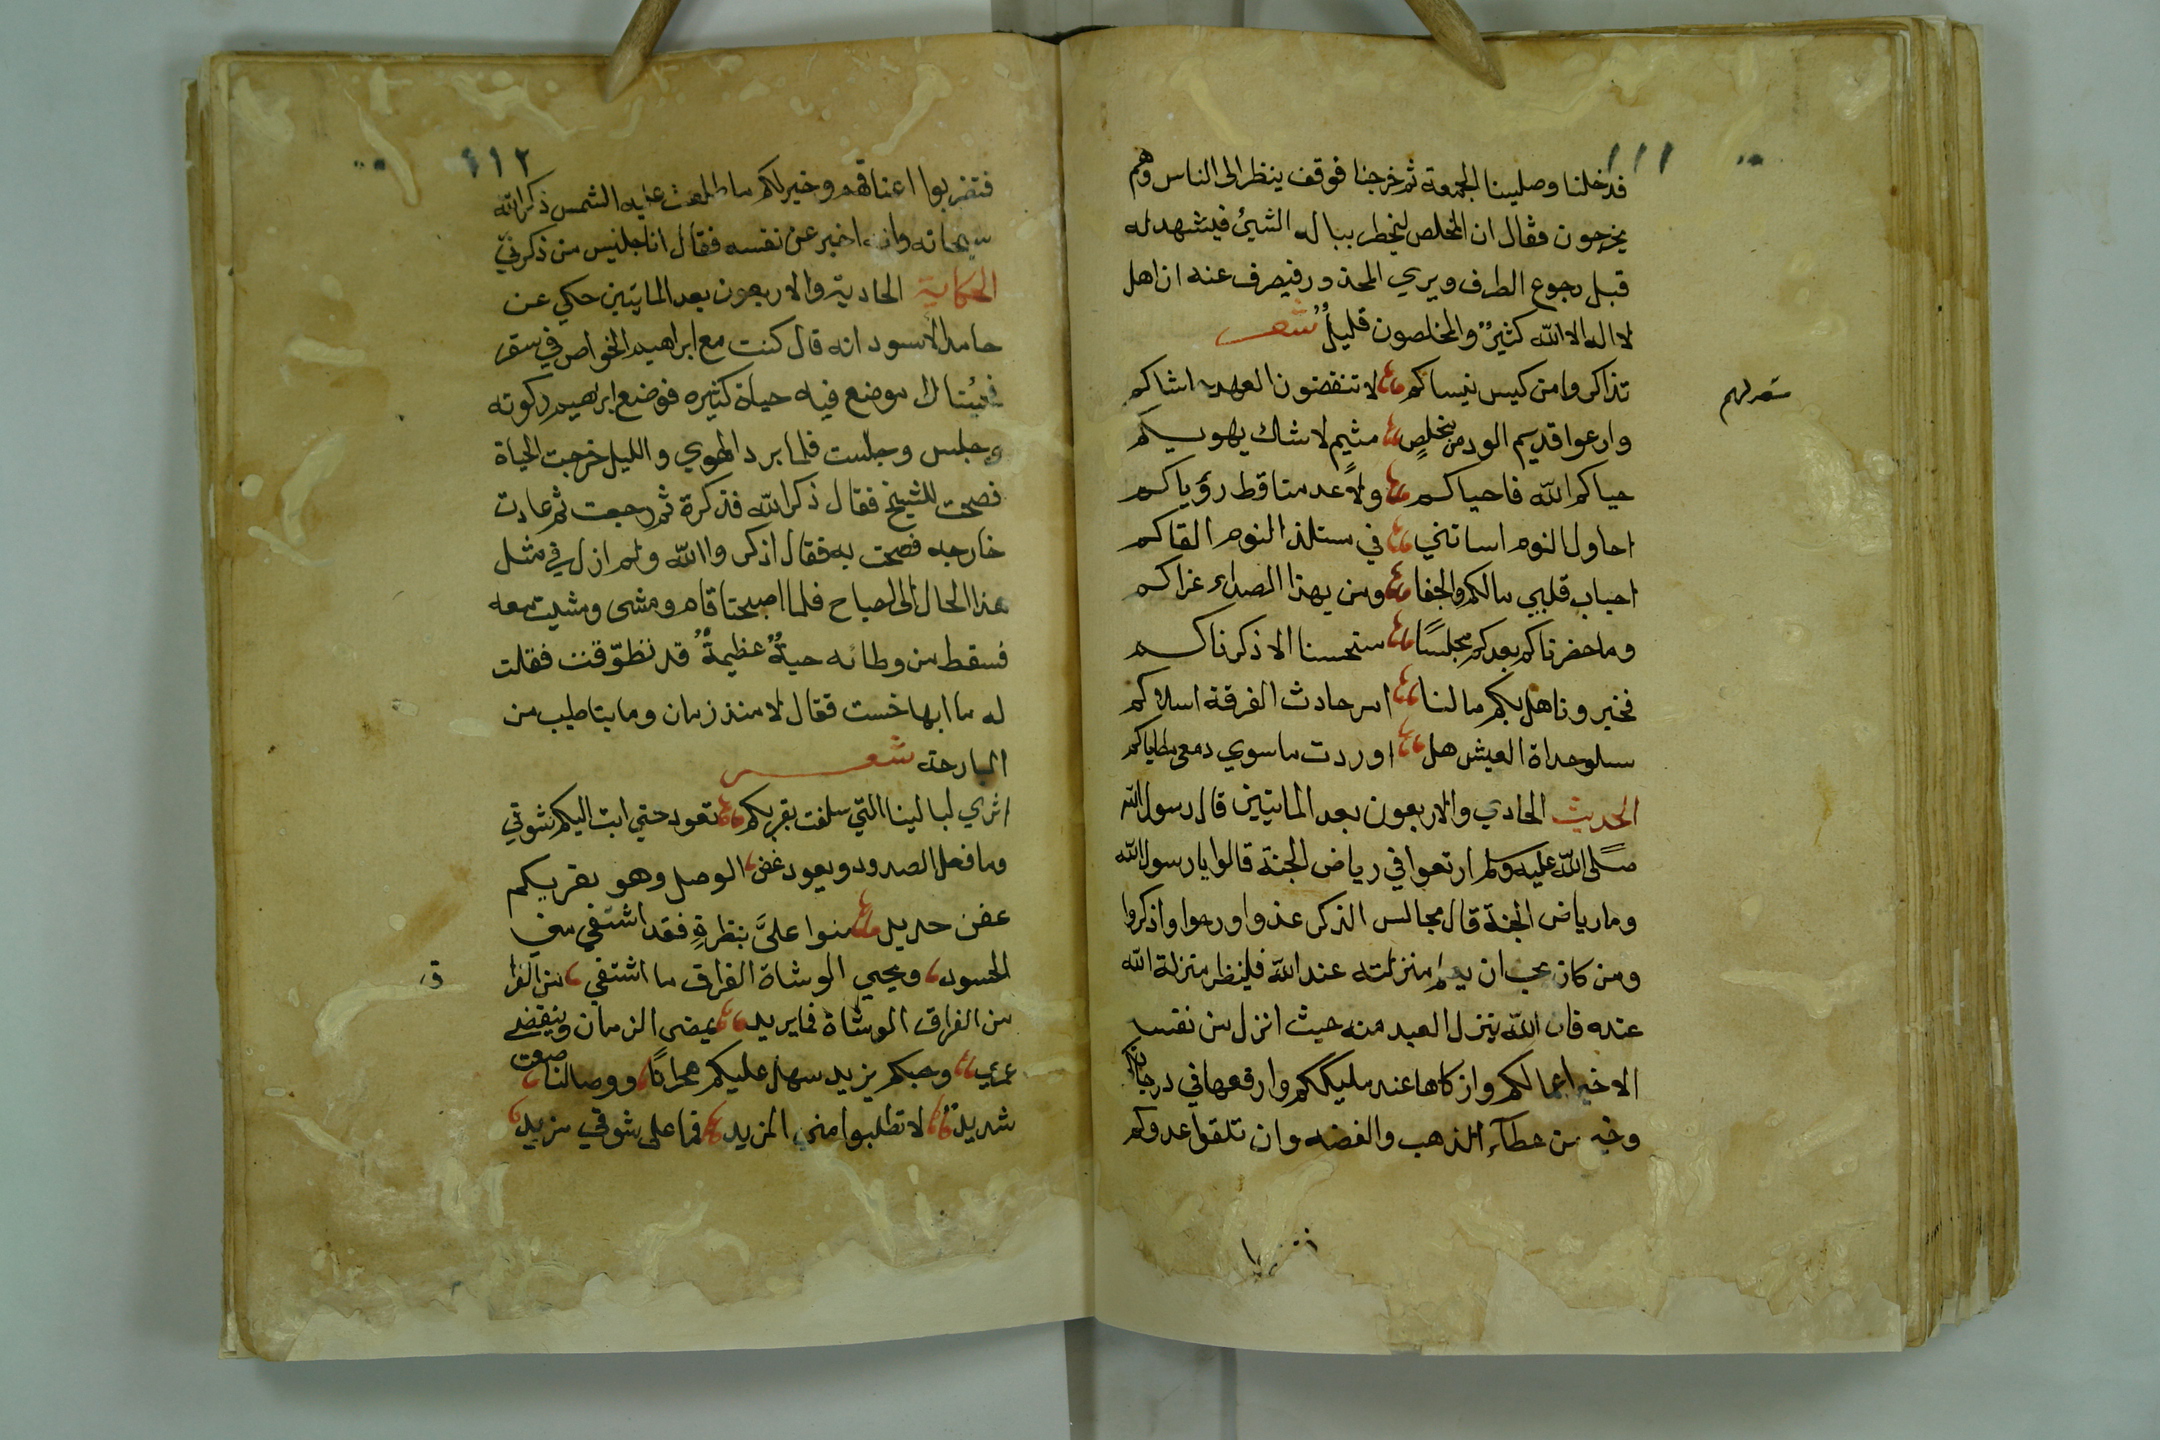 ١١١
فدخلنا وصلينا الجمعة ثم خرجنا فوقف ينظر الى الناس وهم
يخرجون فقال ان المخلص ليخطر ببال له الشيئ فيشهد له
قبل رجوع الطرف ويري المحذور فيصرف عنه ان اهل
لا اله الا الله كثيرٌ والمخلصون قليلٌ شعر
تذاكروا من كيس ينساكم لا تنقضون العهد اشاكم
وارعوا قديم الود من مخلصٍ متيم لا شك يهويكم
حياكم الله فاحياكم ولا عدمتا قط رؤياكم
احاول النوم اساتني في ستلذ النوم القاكم
احباب قلبي مالكم والجفا ومن بهذا الصداء غراكم
وما حضرناكم بعدكم مجلسًا ستحسنا الا ذكرناكم
فخبرونا هل بكم مالنا امر حادث الفرقة اسلاكم
سلو حداة العيش هل اوردت ماسوي دمعي مطاياكم
الحديث الحادي والاربعون بعد الماتيين قال رسول الله
صلى الله عليه وسلم ارتعوا في رياض الجنة قالوا يا رسول الله
وما رياض الجنة قال مجالس الذكر غدوا وروحوا واذكروا
ومن كان يحب ان يعلم منزلته عند الله فلينظر منزلة الله
عنده فان الله ينزل العبد منه حيث انزل من نفسه
الا خير اعمالكم وازكاها عند مليككم وارفعها في درجاتكم
وخير من عطآء الذهب والفضه وان تلقوا عدوكم
فتضربوا
١١٢
فتضربوا اعناقهم وخير لكم ما طلعت عليه الشمس ذكر الله
سبحانه وانه اخبر عن نفسه فقال انا جليس من ذكرني
الحكاية الحادية والاربعون بعد الماتيين حكي عن
حامد الاسود انه قال كنت مع ابراهيم الخواص في سفر
فبتنا في موضع فيه حياة كثيره فوضع ابراهيم ركوته
وجلس وجلست فلما برد الهوي والليل خرجت الحياة
فصحت للشيخ فقال ذكر الله فذكرة ثم رجعت ثم عادت
خارجه فصحت به فقال اذكروا الله ولم ازل في مثل
هذا الحال الى الصباح فلما اصبحنا قام ومشى ومشيت معه
فسقط من وطائه حيةٌ عظيمةٌ قد تطوّقت فقلت
له ما ابها خست فقال لا منذ زمان وما بتاطيب من
البارحة شعر
اثري لبالينا التي سلفت بقربكم تعود حتي ابت اليكم شوقي
وما فعل الصدود ويعود غض الوصل وهو بقربكم
غض جديد منوا علىَّ بنظرةٍ فقد اشتفي مني
الحسود ويحيي الوشاة الفراق ما اشتفي من الفرا
من الفراق الوشاة فما يريد يمضى الزمان وينقضي
عمري وحبكم يزيد سهل عليكم هجرانا ووصالنا صعب
شديد لا تطلبوا مني المزيد فما على شوقي مزيد